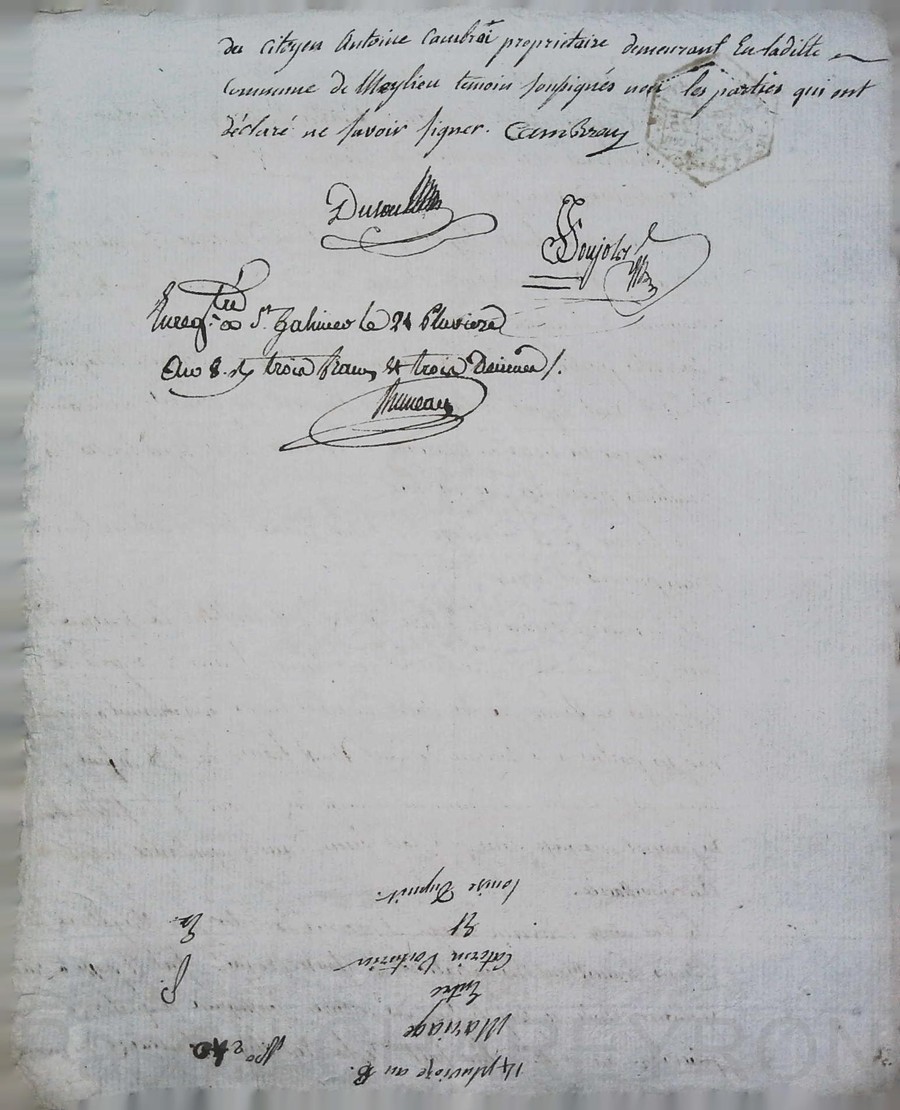 du citoyen Antoine Cambrai proprietaire demeurant En ladille
Commune de Meylieu temoin soussignés non les parties qui ont
déclaré ne savoir signer. Cambray
Soujolet
Enreg.tré a St. Galmier le 24 Pluviose
An 8. trois francs & trois Decimes /.
14 pluvioze an 8.
N.o 240
Mariage
Entre
Caterin
Et
louise Dupuit.